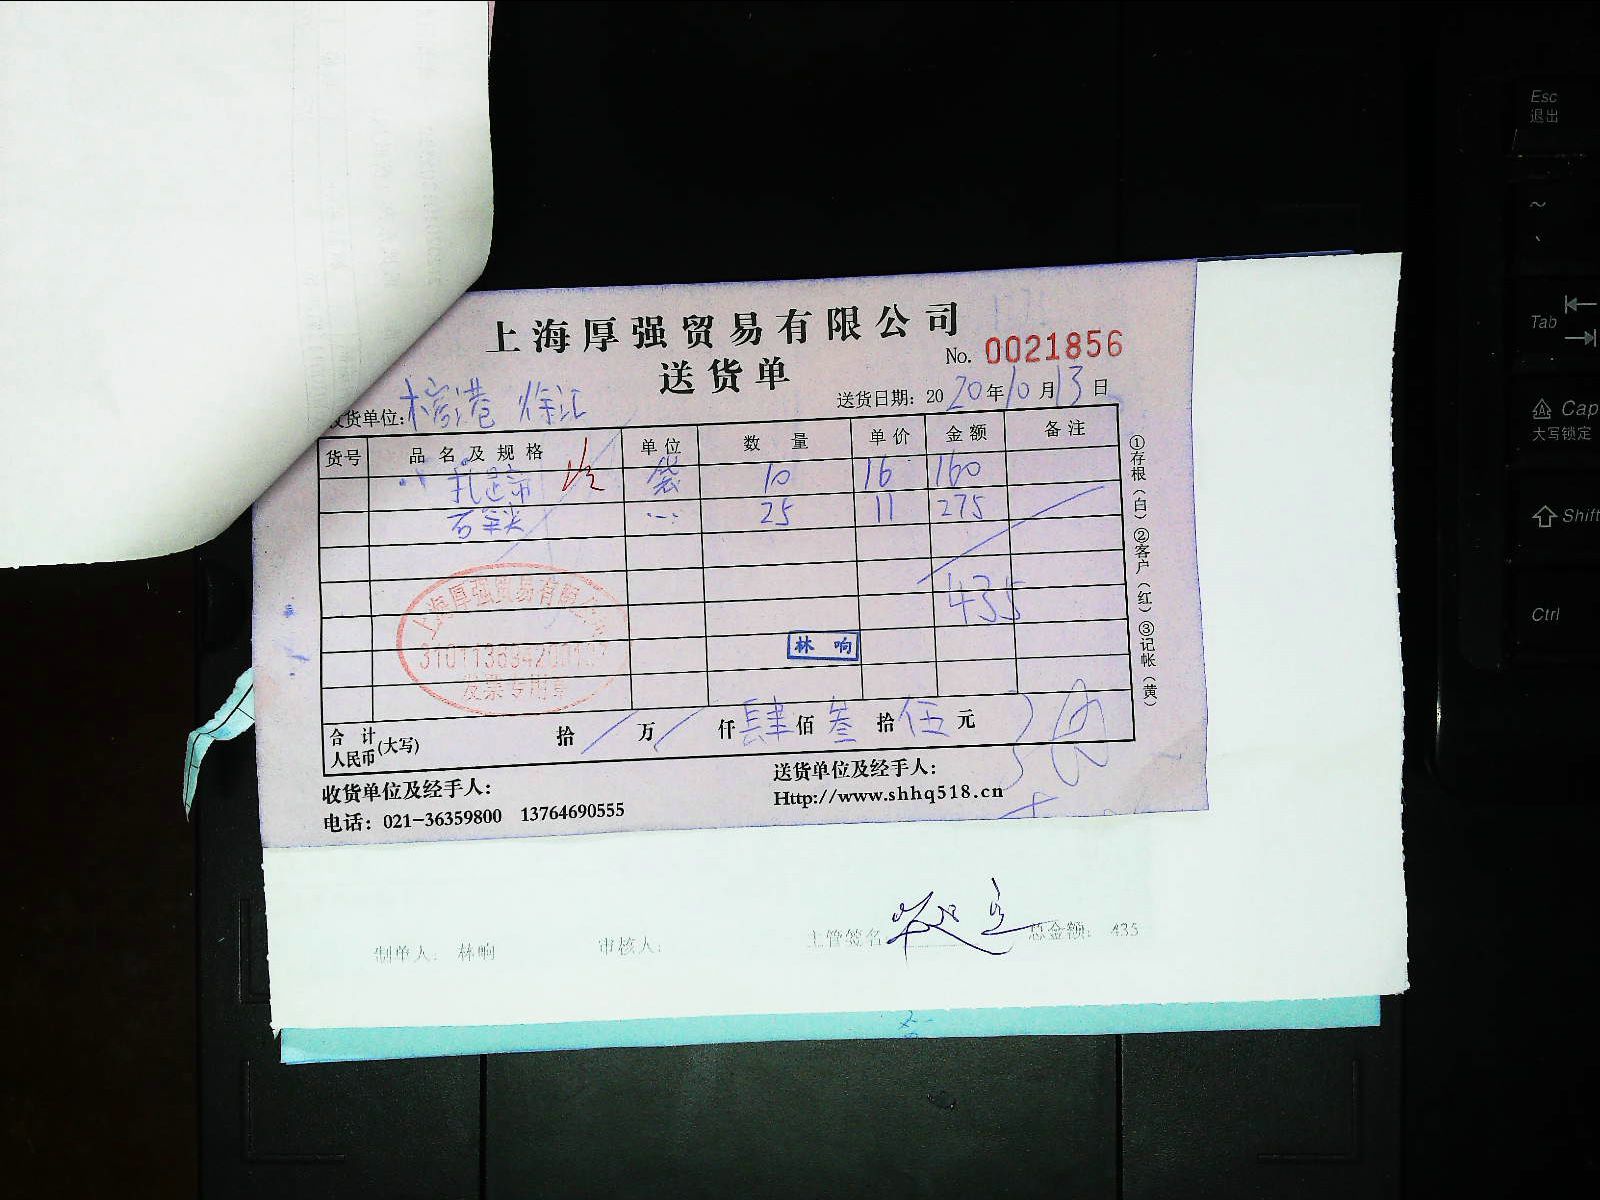 上海厚强贸易有限公司
No. 0021856
送货单
货单位: 港 徐汇
送货日期: 2020年10月13日
货号 品名及规格 单位 数量 单价 金额 备注
扎 带 1/2 袋 10 16 160
25 11 275
435
上海厚强贸易有限公司
发票专用章
林响
合计人民币(大写) 拾 / 万 / 仟肆佰叁拾伍元
收货单位及经手人:
送货单位及经手人:
电话: 021-36359800 13764690555
Http://www.shhq518.cn
①存根(白)②客户(红)③记帐(黄)
制单人: 林响 审核人: 主管签名 总金额: 435
Esc
退出
~
Tab
Cap
大写锁定
Shift
Ctrl